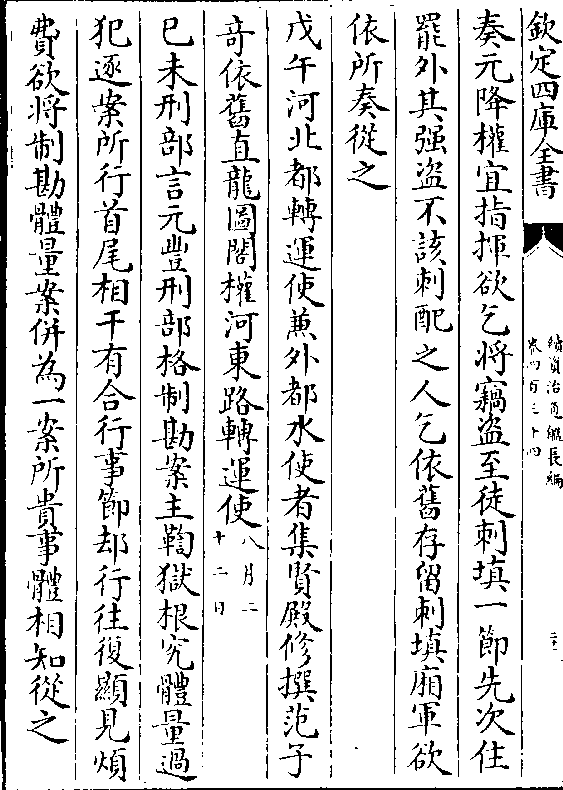 欽定四庫全書
續資治通鑑長編
卷四百三十四
奏元降權宜指揮欲乞將竊盜至徒刺填一節先次住
罷外其强盜不該刺配之人乞依舊存留刺填廂軍欲
依所奏從之
戊午河北都轉運使兼外都水使者集賢殿修撰范子
奇依舊直龍圖閣權河東路轉運使
八月二
十二日
巳未刑部言元豐刑部格制勘案主鞫獄根究體量過
犯逐案所行首尾相干有合行事節却行往復顯見煩
費欲將制勘體量案併為一案所貴事體相知從之